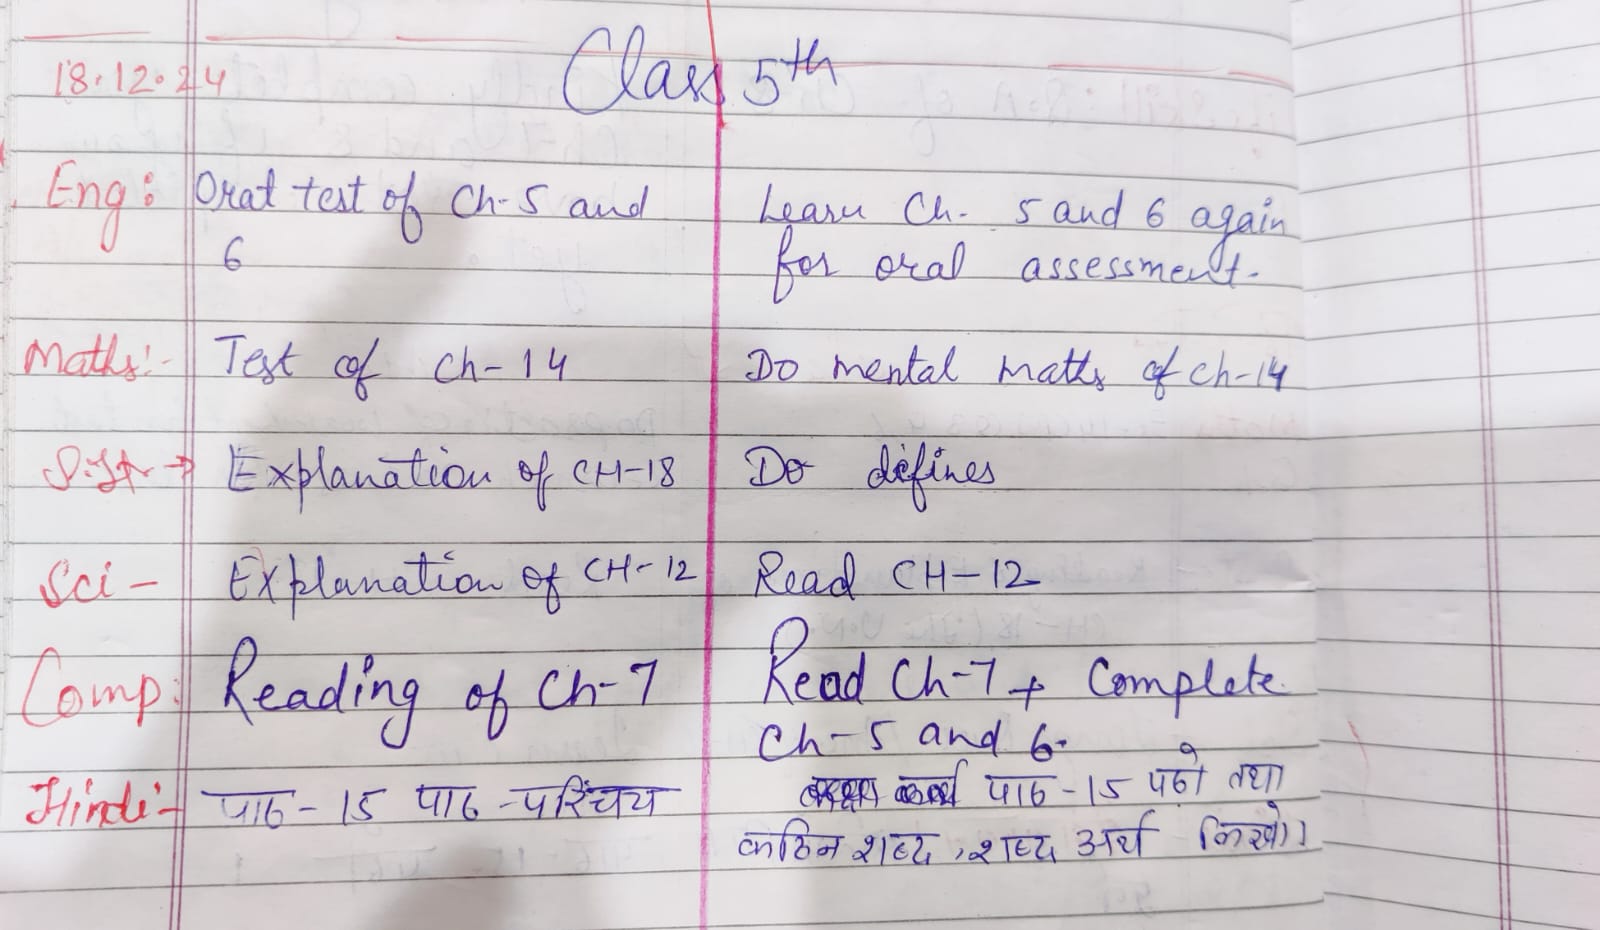 18.12.24
Class 5th
Eng: Oral test of Ch-5 and
6
Learn Ch. 5 and 6 again
for oral assessment.
Maths:- Test of Ch-14
Do mental maths of ch-14
S.St → Explanation of CH-18
Do defines
Sci- Explanation of CH-12
Read CH-12
Comp: Reading of Ch-7
Read Ch-7 + Complete
Ch-5 and 6.
Hindi:- पाठ-15 पाठ-परिचय
पाठ-15 पढ़ो तथा
कठिन शब्द, शब्द अर्थ लिखो।